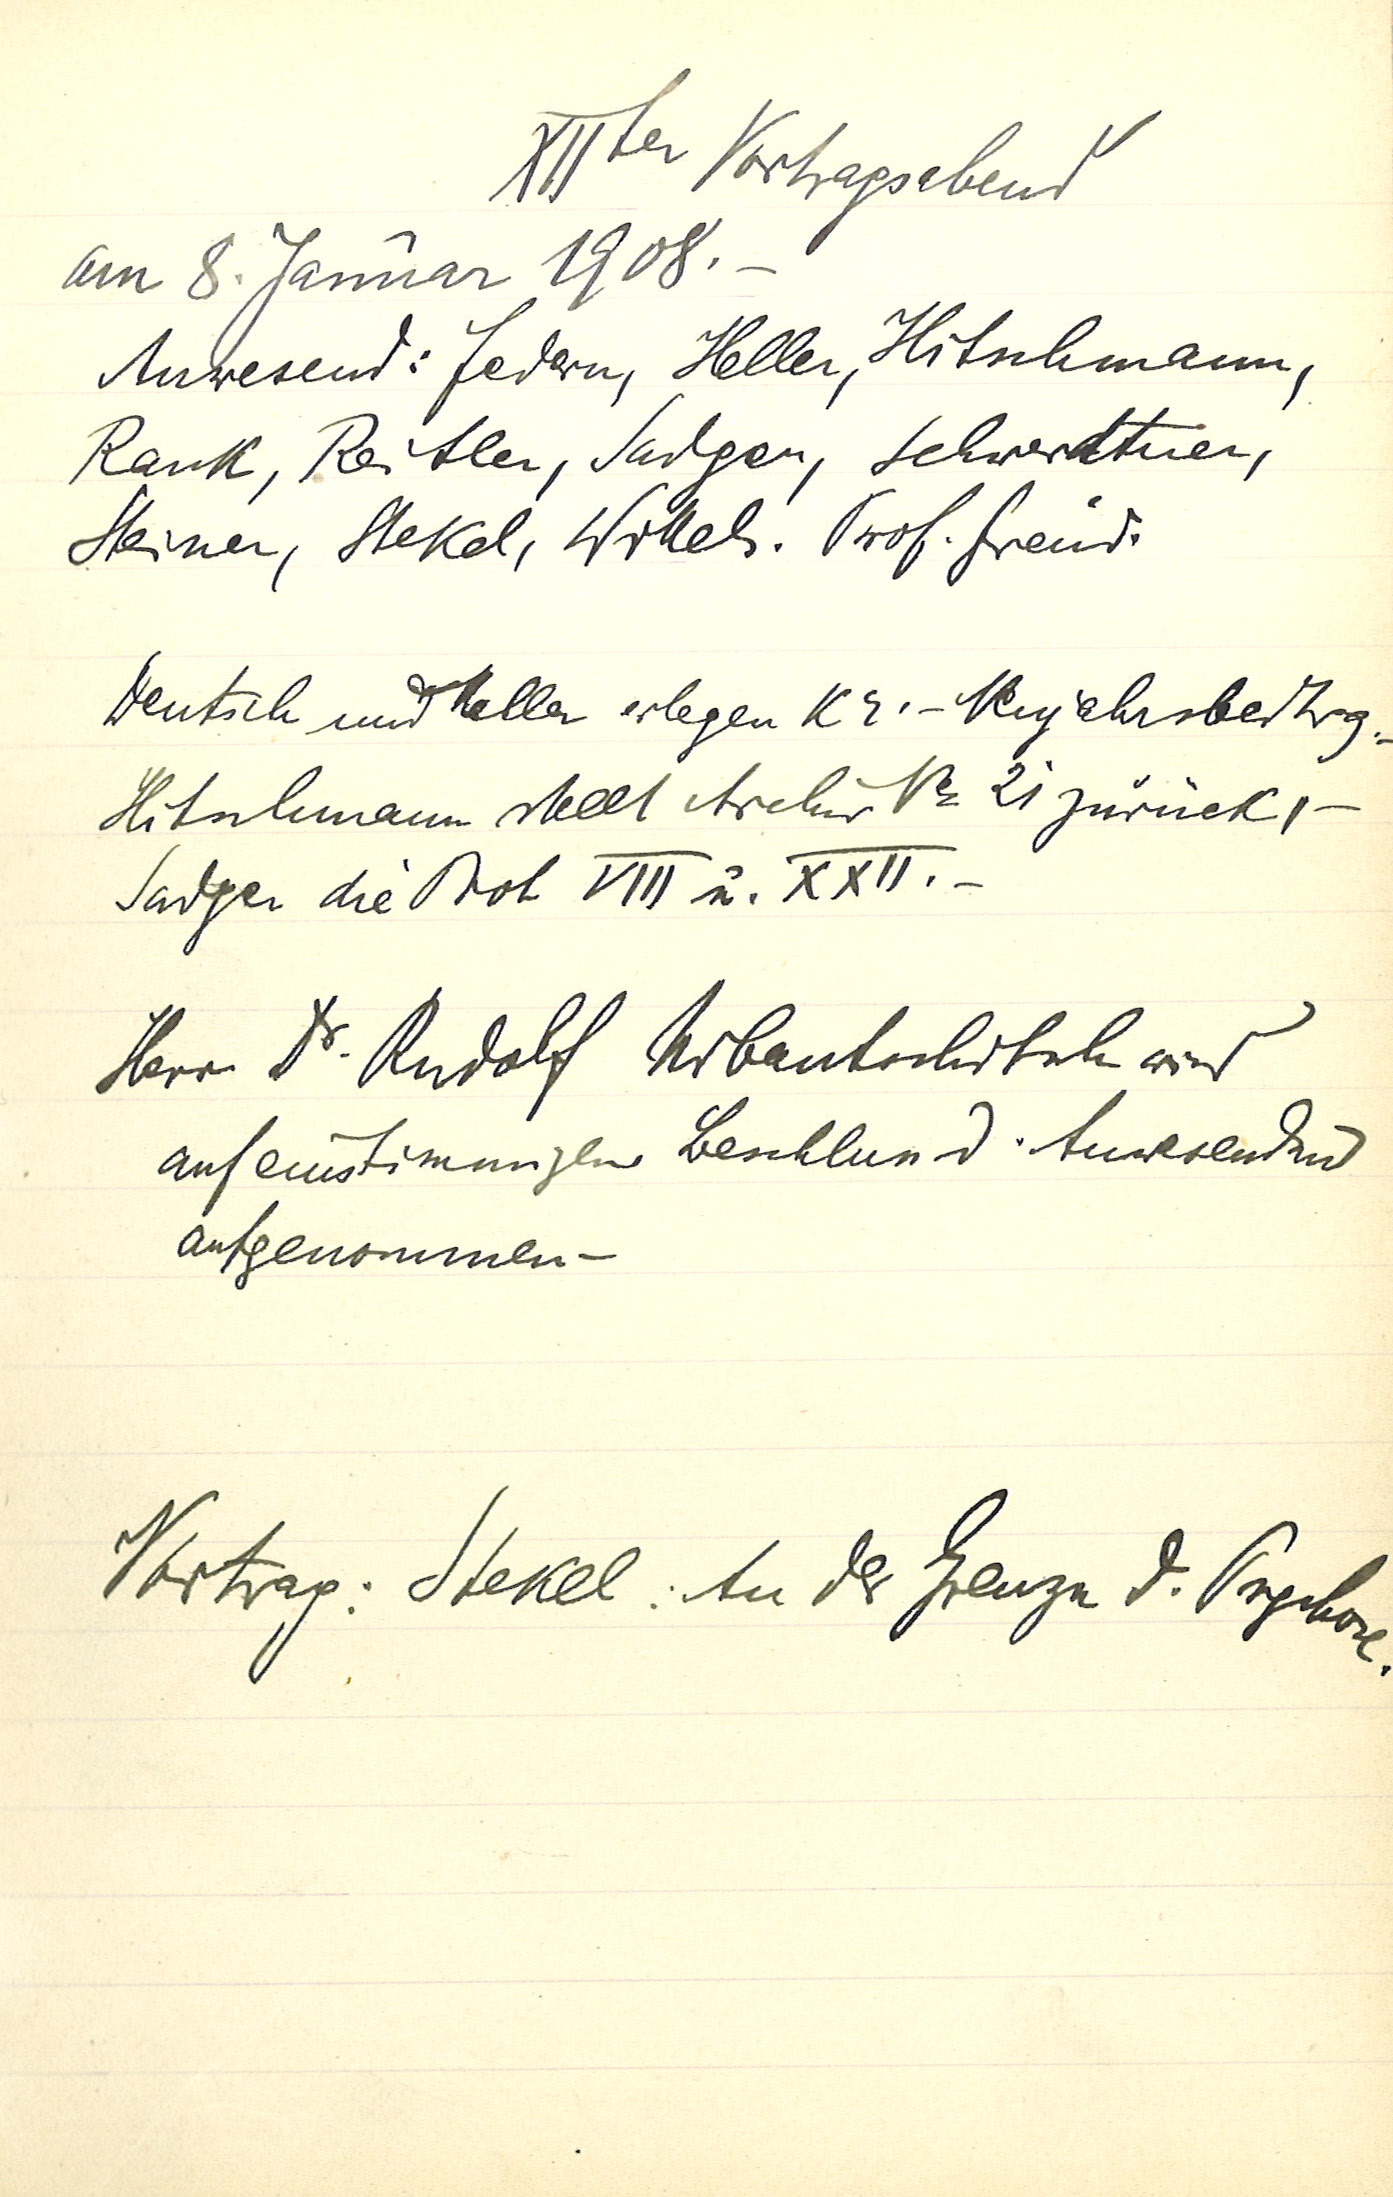 XIIter Vortragsabend
am 8. Januar 1908. –
Anwesend: Federn, Heller, Hitschmann,
Rank, Reitler, Sadger, Schwerdtner,
Steiner, Stekel, Wittels. Prof. Freud.
Deutsch und Heller erlegen K 2.– Neujahrsbeitrg.–
Hitschmann stellt Archiv No 21 zurück, –
Sadger die Prot VIII u. XXII. –
Herr Dr. Rudolf Urbantschitsch wird
auf einstimmigen Beschluss d. Anwesenden
aufgenommen –
Vortrag: Stekel: An der Grenze d. Psychose.